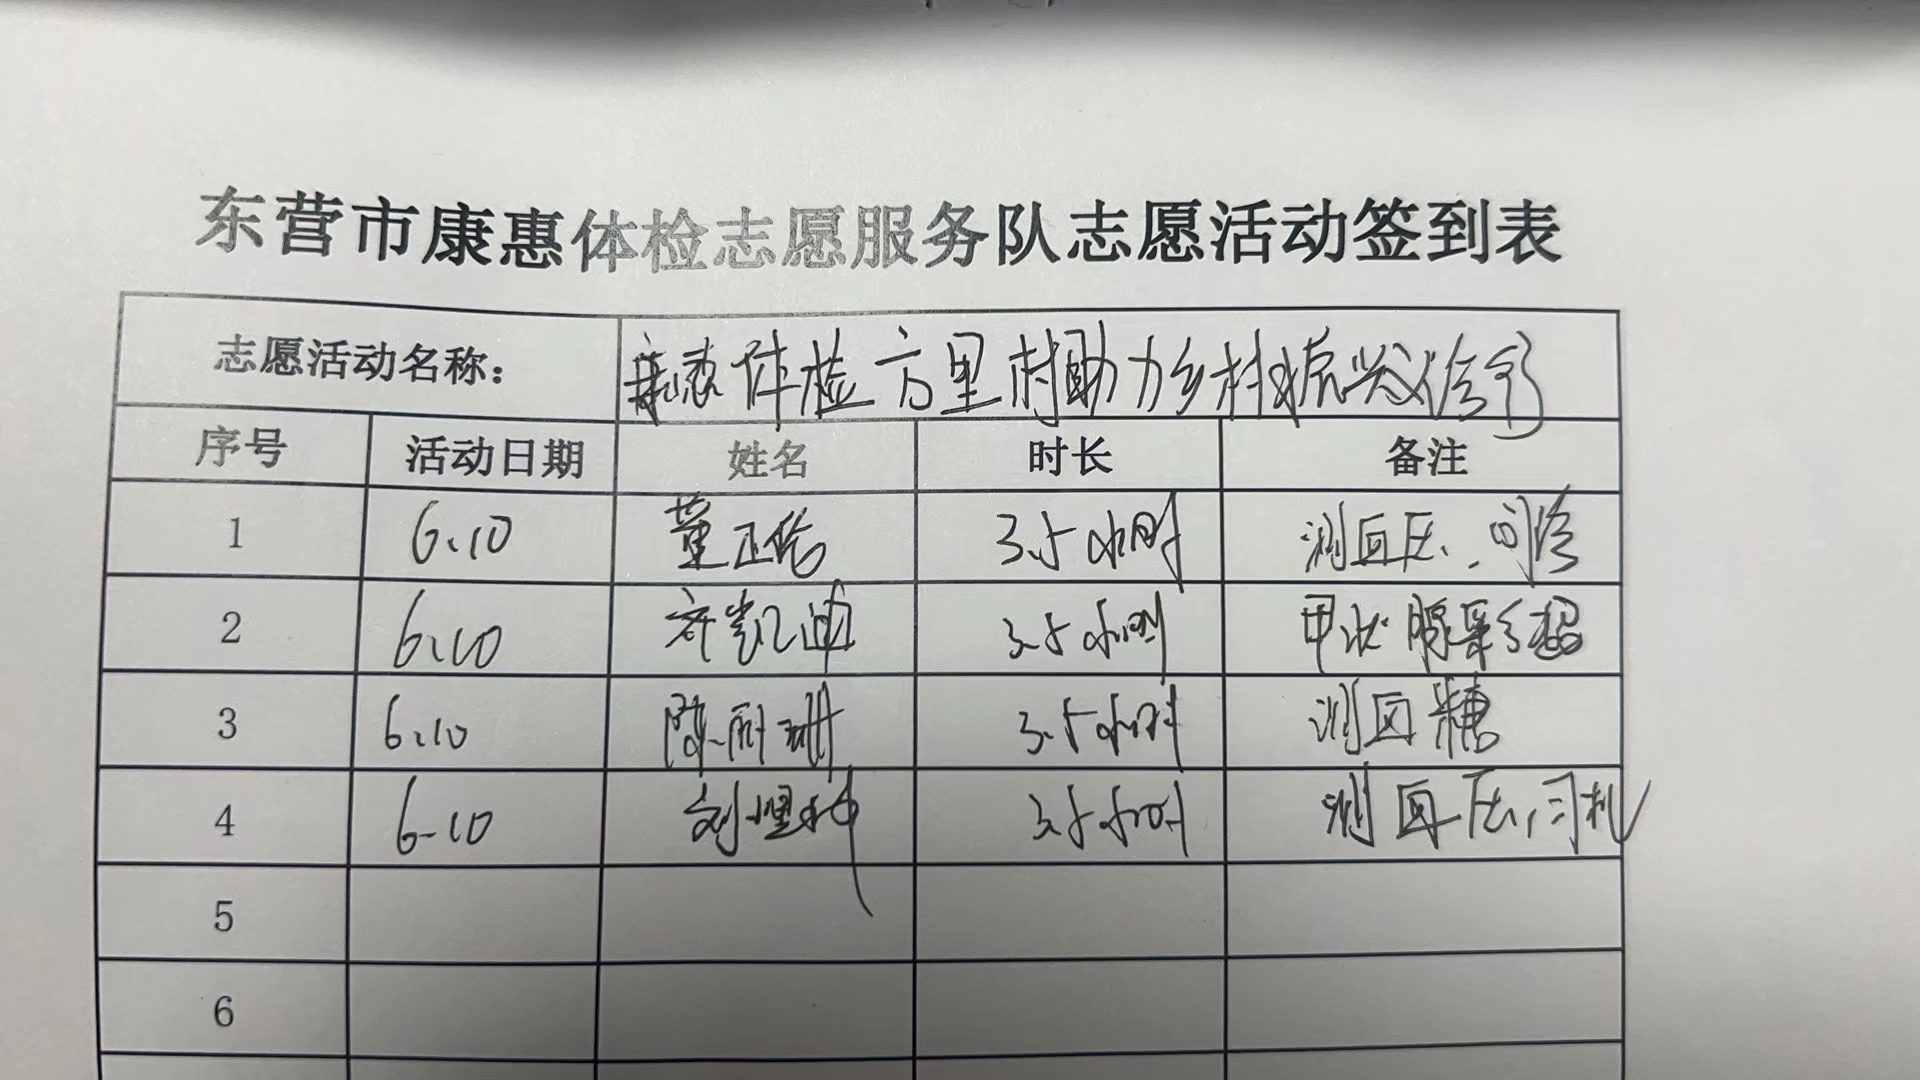 东营市康惠体检志愿服务队志愿活动签到表
志愿活动名称： 康惠体检方里村助力乡村振兴义诊
序号 活动日期 姓名 时长 备注
1 6.10 董正伦 3.5小时 测血压、问诊
2 6.10 齐凯迪 3.5小时 甲状腺彩超
3 6.10 陈丽珊 3.5小时 测血糖
4 6.10 刘 3.5小时 测血压,司机
5
6